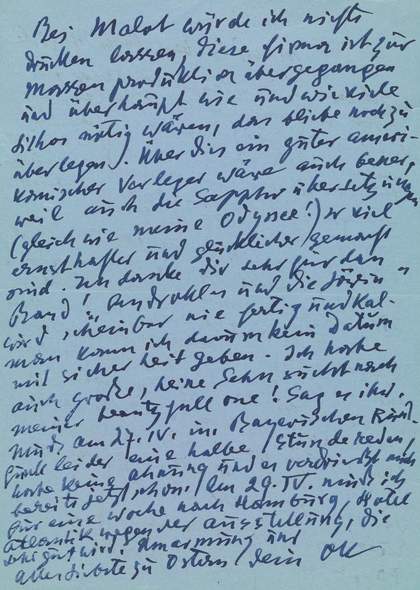 Bei Malat würde ich nichts
drucken lassen, diese Firma ist zur
massenproduktion übergegangen
und überhaupt wie und wieviele
Lithos nötig wären, das bliebe noch zu
überlegen). Überdies ein guter ameri-
kanischer Verleger wäre auch besser,
weil auch die Sappho übersetzungen
(gleich wie meine Odyssee!) so viel
ernsthafter und glücklicher gemacht
sind. Ich danke dir sehr für den
Band! "Androklus und die Löwin"
wird scheinbar nie fertig und Kal-
man kann ich darum kein Datum
mit sicherheit geben. Ich habe
auch große, keine Sehnsucht nach
meiner beautyfull one! Sag es ihr.
muß am 27. IV. im Bayerischen Rund-
funk leider eine halbe Stunde reden,
habe keine ahnung und es verdrießt mich
bereits jetzt schon. Am 29. IV. muß ich
für eine woche nach Hamburg, Hotel
Atlantik wegen der ausstellung, die
sehr gut wird. Umarmung und
alles Liebste zu Ostern dein OK